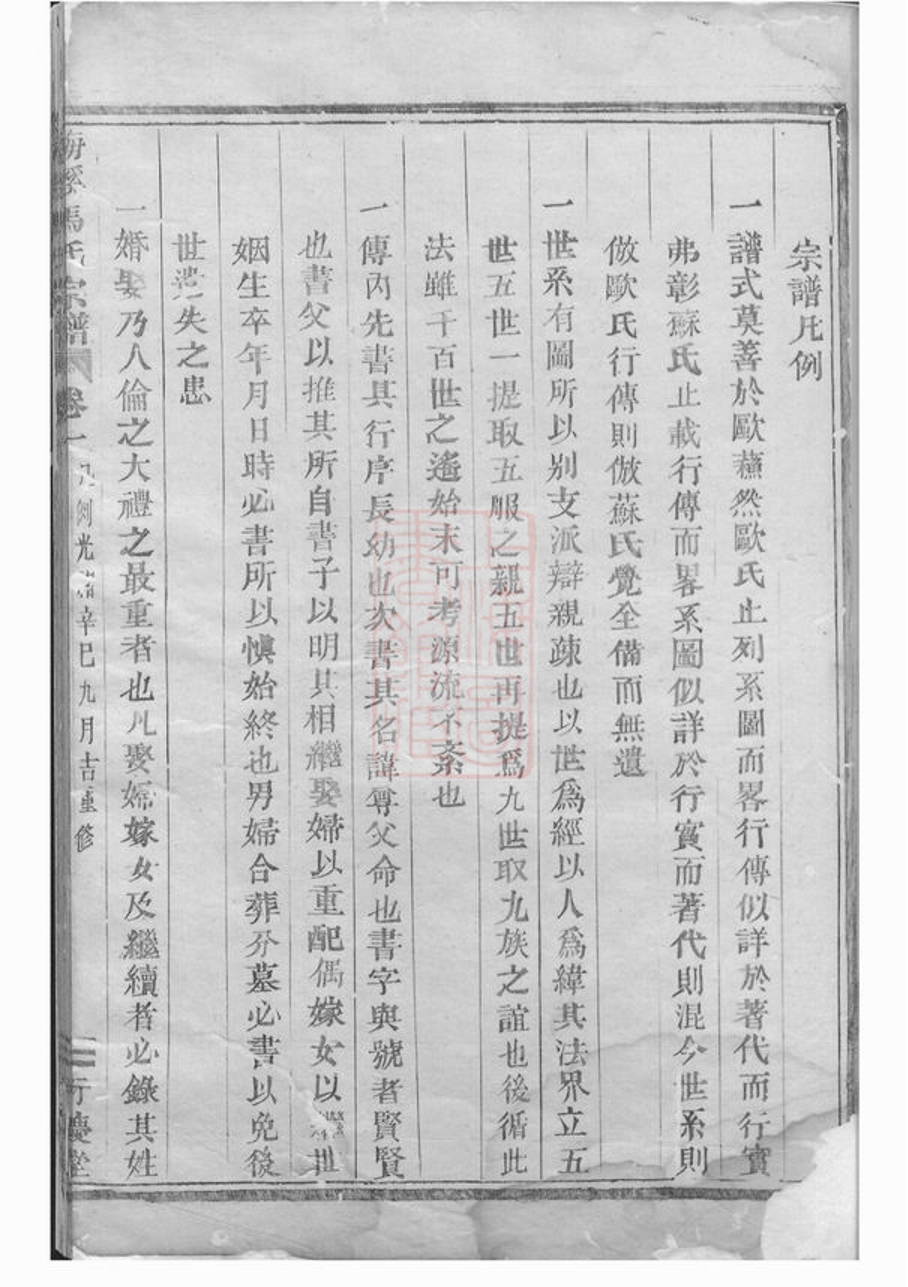 宗譜凡例
一譜式莫善於歐蘇然歐氏止列系圖而畧行傳似詳於著代而行實
弗彰蘇氏止載行傳而畧系圖似詳於行實而著代則混今世系則
倣歐氏行傳則倣蘇氏覺全備而無遺
一世系有圖所以别支派辯親疎也以世爲經以人爲緯其法界立五
世五世一提取五服之親五世再提爲九世取九族之誼也後循此
法雖千百世之遙始末可考源流不紊也
一傳內先書其行序長幼也次書其名諱尊父命也書字與號者賢賢
也書父以推其所自書子以明其相繼娶婦以重配偶嫁女以世
姻生卒年月日時必書所以慎始終也男婦合葬分墓必書以免後
世遺失之患
一婚娶乃人倫之大禮之最重者也凡娶婦嫁女及繼續者必錄其姓
馬氏宗譜 卷一 凡例光緒辛巳九月吉重修 行慶堂